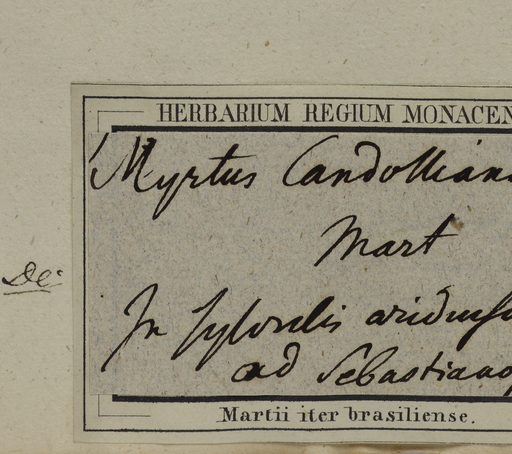 HERBARIUM REGIUM MONACEN
Myrtus Candolliana
Mart
De
In Sylvulis
ad Sebastianop
Martii iter brasiliense.